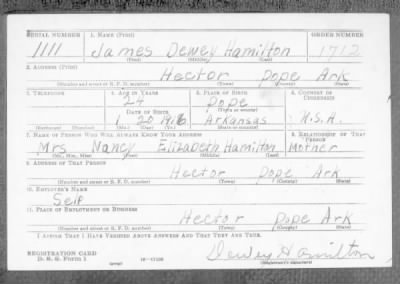 SERIAL NUMBER 1. NAME (Print) ORDER NUMBER
1111 James Dewey Hamilton 1712
(First) (Middle) (Last)
2. ADDRESS (Print)
Hector Pope Ark
(Number and street or R. F. D. number) (Town) (County) (State)
3. TELEPHONE 4. AGE IN YEARS 5. PLACE OF BIRTH 6. COUNTRY OF CITIZENSHIP
24 Pope
DATE OF BIRTH (Town or county)
1 20 1916 Arkansas U.S.A.
(Exchange) (Number) (Mo.) (Day) (Yr.) (State or country)
7. NAME OF PERSON WHO WILL ALWAYS KNOW YOUR ADDRESS 8. RELATIONSHIP OF THAT PERSON
Mrs Nancy Elizabeth Hamilton Mother
(Mr., Mrs., Miss) (First) (Middle) (Last)
9. ADDRESS OF THAT PERSON
Hector Pope Ark
(Number and street or R. F. D. number) (Town) (County) (State)
10. EMPLOYER'S NAME
Self
11. PLACE OF EMPLOYMENT OR BUSINESS
Hector Pope Ark
(Number and street or R. F. D. number) (Town) (County) (State)
I AFFIRM THAT I HAVE VERIFIED ABOVE ANSWERS AND THAT THEY ARE TRUE.
REGISTRATION CARD Dewey Hamilton
D. S. S. Form 1 (over) (Registrant's signature)